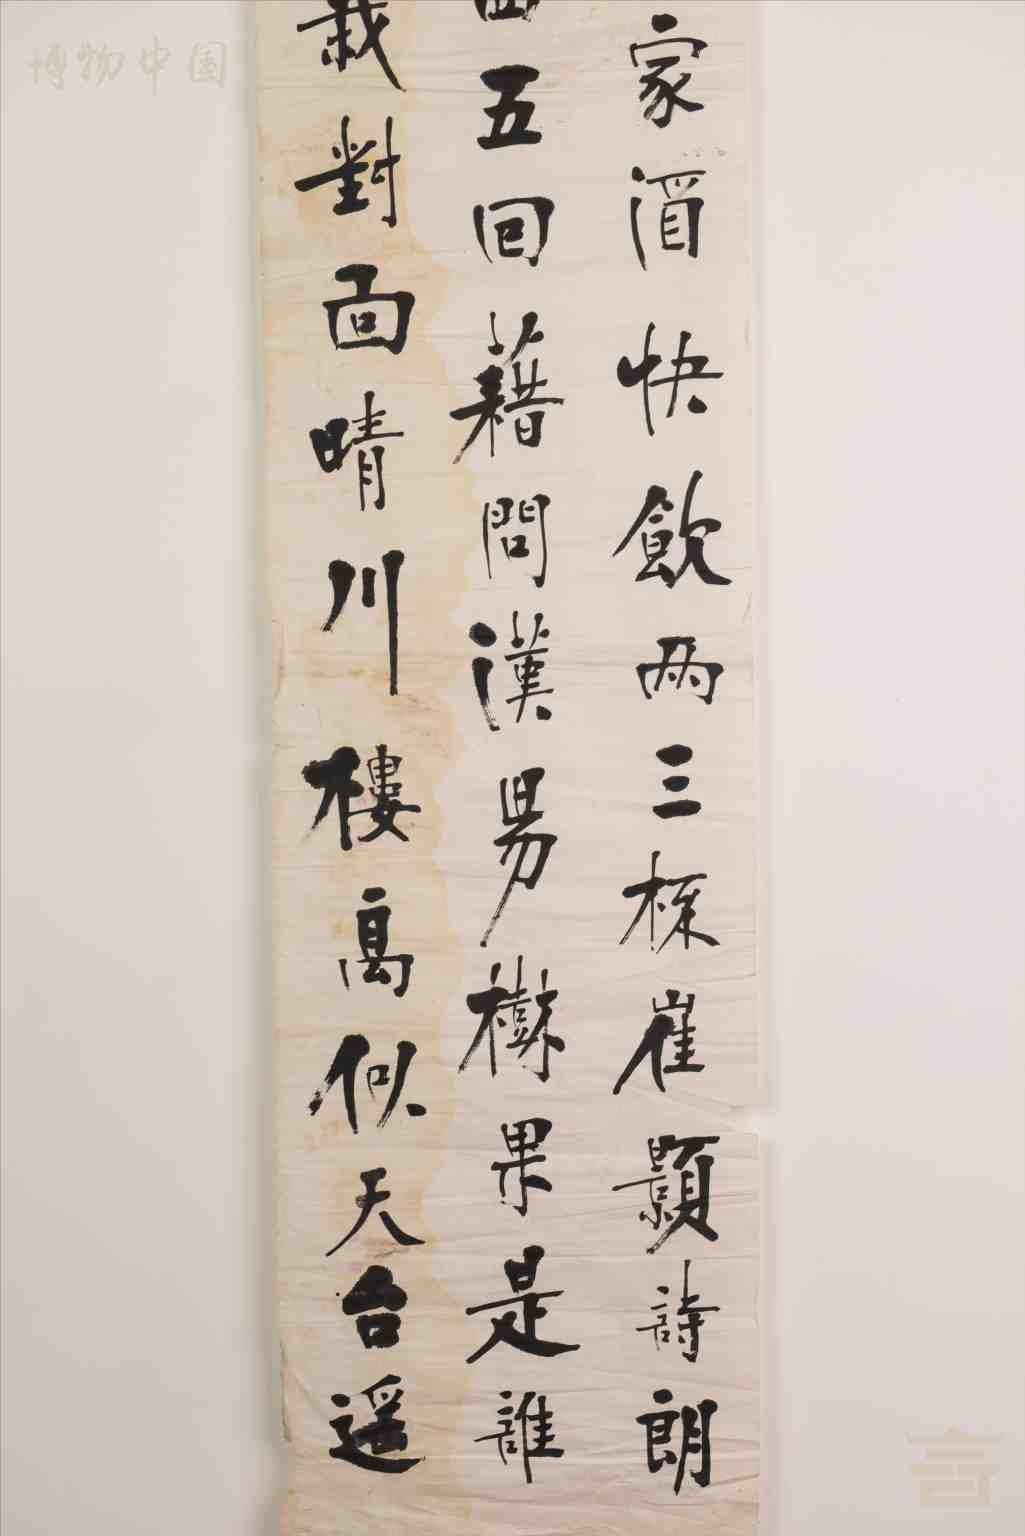 家酒快飲兩三杯崔顥詩朗
四五回藉問漢昜樹果是誰
栽對面晴川樓高似天台遥
博物中国